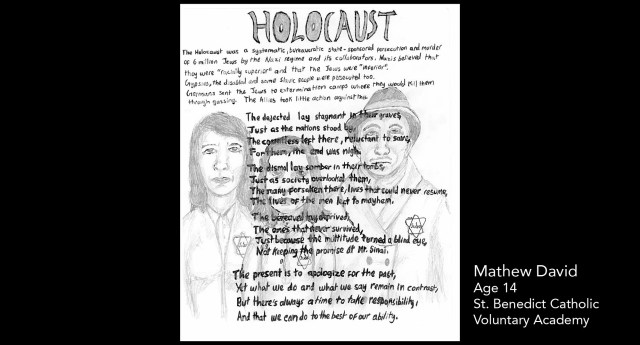 HOLOCAUST
The Holocaust was a systematic, bureaucratic state-sponsored persecution and murder
of 6 million Jews by the Nazi regime and its collaborators. Nazis believed that
they were "racially superior" and that the Jews were "inferior".
Gypsies, the disabled and some Slavic people were persecuted too.
Germans sent the Jews to extermination camps where they would kill them
through gassing. The Allies took little action against this.
The dejected lay stagnant in their graves,
Just as the nations stood by,
The countless left there, reluctant to save,
For them, the end was nigh.
The dismal lay somber in their tombs,
Just as society overlooked them,
The many forsaken there, lives that could never resume,
The lives of the men left to mayhem.
The bereaved lay deprived,
The ones that never survived,
Just because the multitude turned a blind eye,
Not keeping the promise at Mt. Sinai.
The present is to apologize for the past,
Yet what we do and what we say remain in contrast,
But there's always a time to take responsibility,
And that we can do to the best of our ability.
Mathew David
Age 14
St. Benedict Catholic
Voluntary Academy